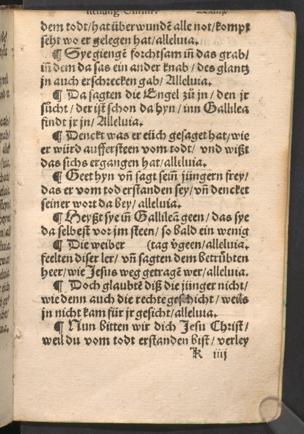 dem todt/ hat überwundē alle not/ kompt
seht wo er gelegen hat/ alleluia.
¶ Sye giengē forchtsam in das grab/
iñ dem da sas ein ander knab/ des glantz
jn auch erschrecken gab/ Alleluia.
¶ Da sagten die Engel zů jn/ den jr
sücht/ der ist schon da hyn/ inn Gallilea
findt jr jn/ Alleluia.
¶ Denckt was er eüch gesaget hat/ wie
er würd aufferstteen vom todt/ vnd wißt
das sichs ergangen hat/ alleluia.
¶ Geet hyn vñ sagt sein jüngern frey/
das er vom tod erstanden sey/ vñ dencket
seiner wort da bey/ alleluia.
¶ Heyßt sye iñ Gallileā geen/ das sye
da selbest vor jm steen/ so bald ein wenig
¶ Die weiber (tag v̄geen/ alleluia.
feelten diser ler/ vñ sagten dem betrübten
heer/ wie Jesus weg getragē wer/ alleluia.
¶ Doch glaubtē diß die jünger nicht/
wie denn auch die rechte geschicht/ weils
jn nicht kam für jr gesicht/ alleluia.
¶ Nun bitten wir dich Jesu Christ/
weil du vom todt erstanden bist/ verley
K iiij